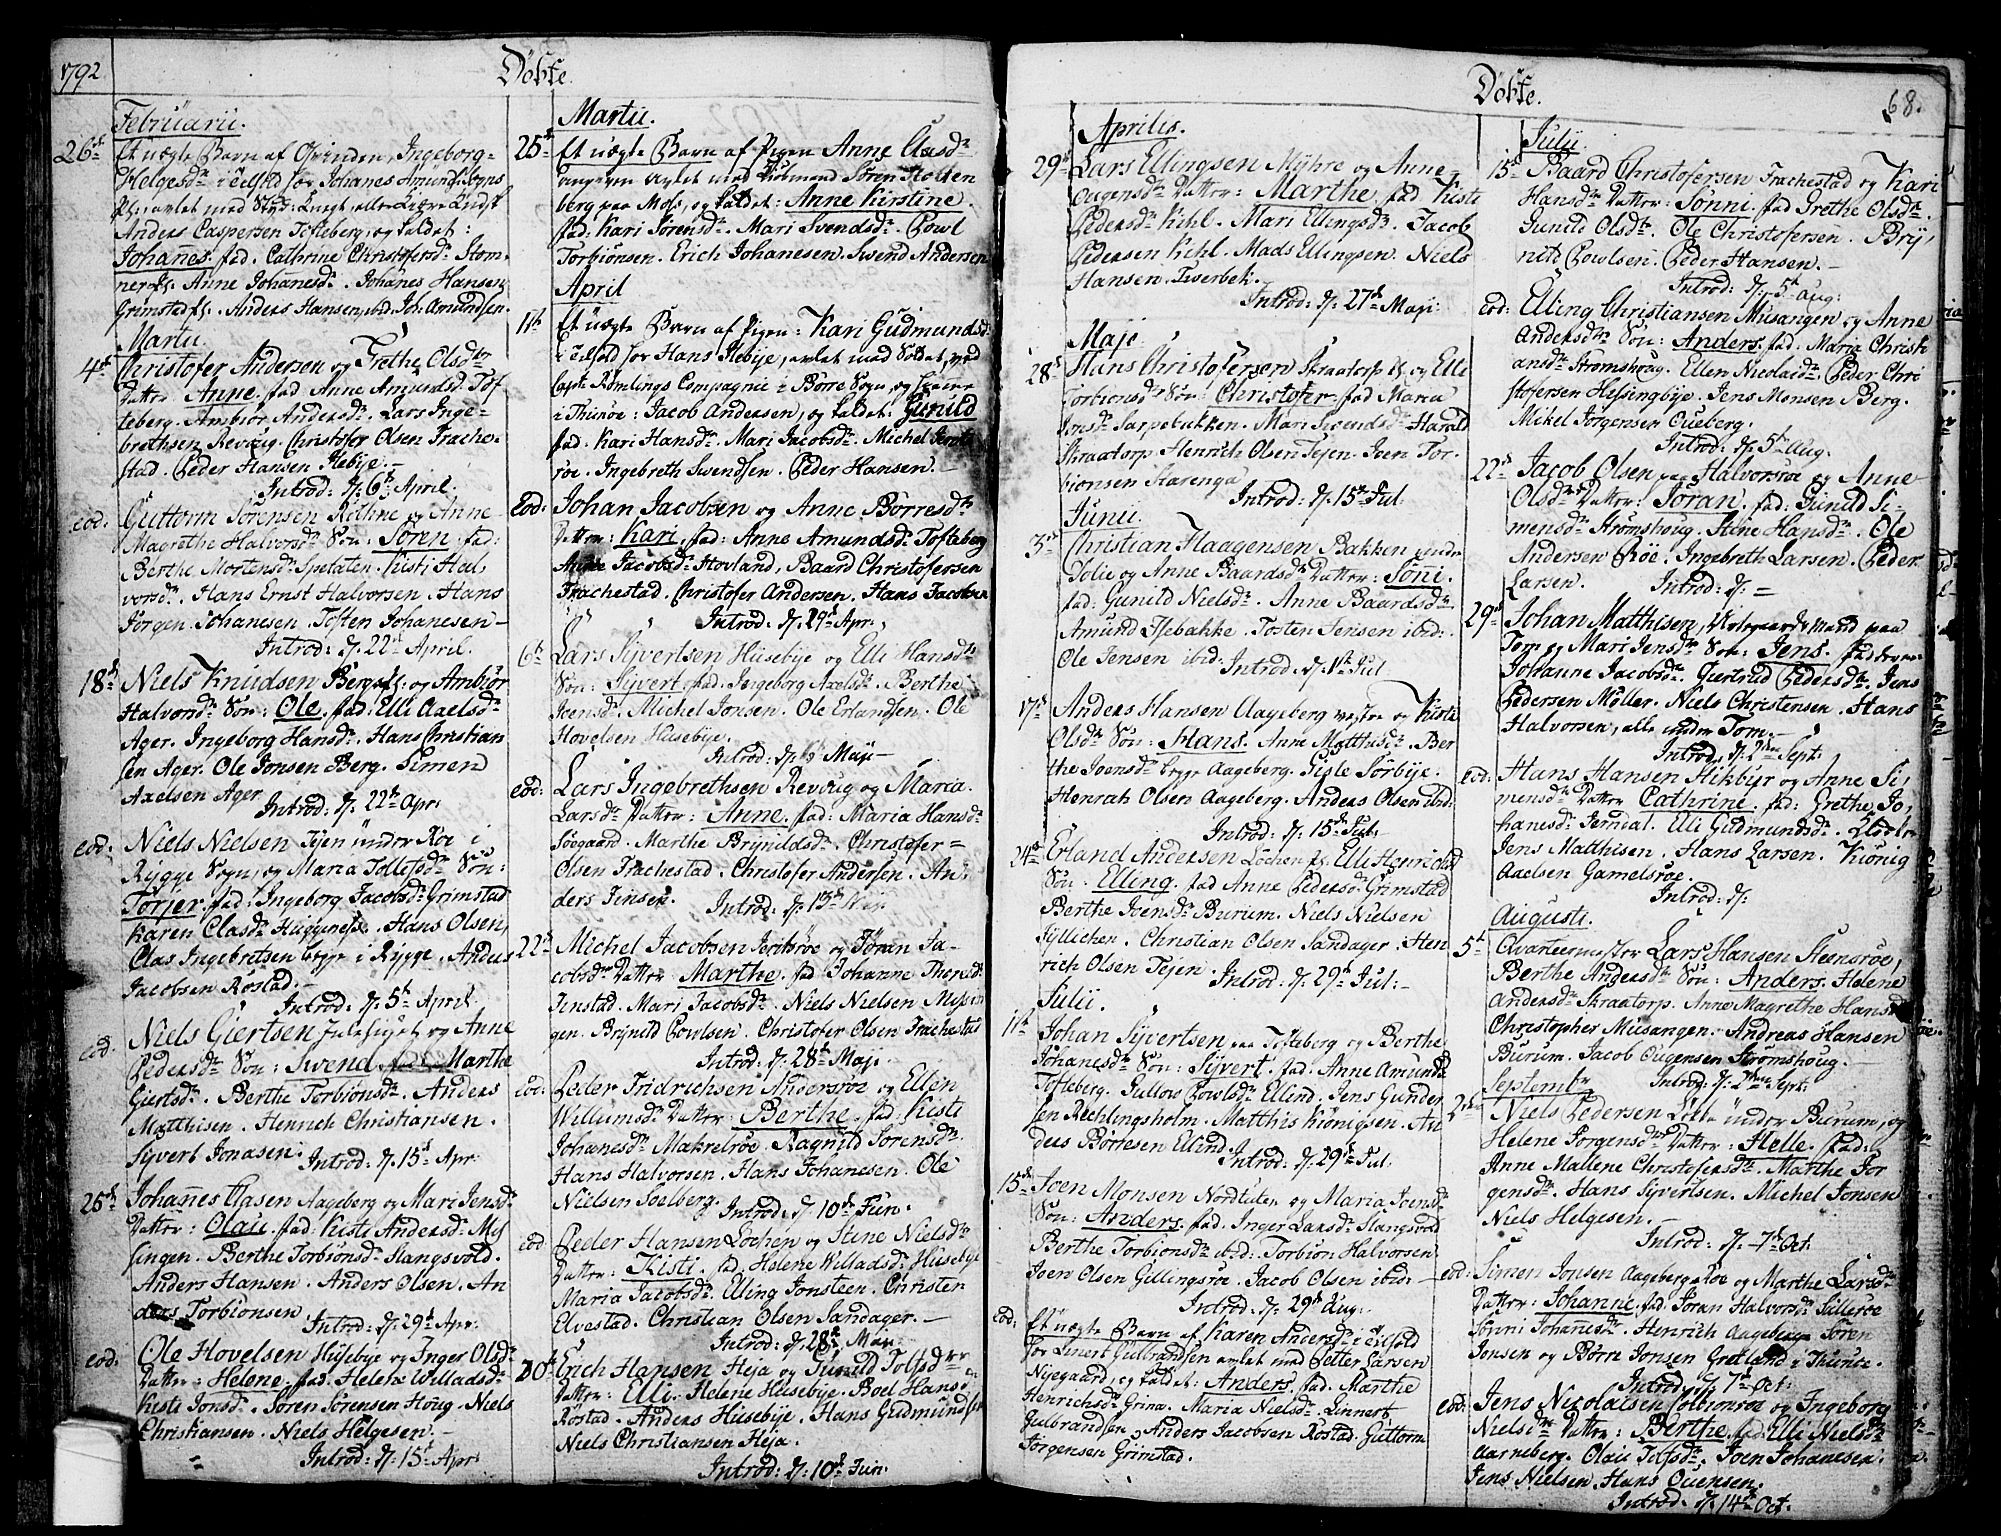 1792
Döbte.
Februarii.
26de Et uægte Barn af Qvinden, Ingeborg
Helgesdr i Eilstd hos Johanes Amunds. Sogns
Pl: avlet med
Anders Caspersen Tofteberg, og kaldet:
Johanes. fad. Cathrine Christofersdr Stom-
ner Pl. Anne Johanesdr. Johanes Hansen
Grimstad Pl. Anders Hansen, ibid: Joh: Amundsen.
Martii.
4de Christofer Andersen og Grethe Olsdr
Datter: Anne. fad Anne Amundsd. Tof-
teberg. Ambior Andersdr. Lars Inge-
brethsen Revoug. Christofer Olsen Trache-
stad. Peder Hansen Hebije.
Introd: d: 6te April.
eod: Guttorm Sörensen Rölhne og Anne
Magrethe Halvorsdr Sön: Sören fad:
Berthe Mortensdr Spetalen. Kisti Hal
vorsdr. Hans Ernst Halvorsen. Hans
Jörgen Johanesen. Tosten Johanesen
Introd: d: 22de April.
18de Niels Knudsen Berg Pl: og Ambiör
Halvorsdr Sön: Ole. fad: Elli Axelsdr
Ager. Ingeborg Hansdr. Hans Christian
sen Ager. Ole Jonsen Berg. Simen
Axelsen Ager
Introd: d: 22de Apr:
eod: Niels Nielsen Tejen under Roe i
Rygge Sogn, og Maria Tollefsdr Sön:
Torjer. fad: Ingeborg Jacobsdr Grimstad
Karen Clasdr Huggenes. Hans Olsen,
Clas Ingebretsen begge i Rygge. Anders
Jacobsen Rostad.
Introd: d: 5te April
eod: Niels Giertsen Julsiget og Anne
Pedersdr Sön: Swend. fad: Marthe
Giertsdr. Berthe Torbionsdr. Anders
Matthisen. Henrich Christiansen.
Syvert Jonasen.
Introd: d: 15de Apr:
25de Johanes Clasen Aageberg og Mari Jensdr
Datter: Olaü. fad: Kisti Andersdr. Mys
singen. Berthe Torbionsdr Slangsvold.
Anders Hansen. Anders Olsen. An
ders Torbionsen
Introd: d: 29de Apr:
eod: Ole Hovelsen Husebye og Inger Olsdr
Datter: Helene. fad. Helene Willadsdr
Kisti Jonsdr. Sören Sörensen Houg. Niels
Christiansen. Niels Helgesen.
Introd: d: 15de Apr:
Martii.
25de Et uægte Barn af Pigen Anne Clasdr
angiven avlet med Kiöbmand Sören Stolten
berg paa Moss, og kaldet: Anne Kirstine.
fad: Kari Sörensdr. Mari Svendsdr. Powl
Torbiönsen. Erich Johanesen. Swend Andersen
April
1ste Et uægte Barn af Pigen: Kari Gudmundsd:
i Eilstd hos Hans Hebije, avlet med Soldat, ved
Capt: Römlings Compagnie i Borre Sogn, og
i Thunöe: Jacob Andersen, og kaldet: Gunild
fad: Kari Hansdr. Mari Jacobsdr. Michel
röe. Ingebreth Swendsen. Peder Hansen.
Eod: Johan Jacobsen og Anne Börresdr
Datter: Kari. fad: Anne Amundsdr Tofteberg
Anne Jacobsdr Hovland. Baard Christofersen
Trachestad. Christofer Andersen. Hans Jacobsen
Introd: d: 29de Apr:
6te Lars Syvertsen Husebye og Elli Hansdr
Sön: Syvert. fad: Ingeborg Axelsdr. Berthe
Joensdr. Michel Jonsen. Ole Erlandsen. Ole
Hovelsen Husebye.
Introd: d: 6te Maji
eod: Lars Ingebrethsen Revoug og Maria
Larsdr Datter: Anne. fad: Maria Hansdr
Söegaard. Marthe Brynildsdr. Christofer
Olsen Trachestad. Christofer Andersen. An-
ders Jensen.
Introd: d: 13de Maji
22de Michel Jacobsen Jeritsröe og Jöran Ja-
cobsdr Datter: Marthe. fad Johanne Thorsdr
Jenstad. Mari Jacobsdr. Niels Nielsen Myssen
gen. Brynild Powlsen. Christofer Olsen Trachestad
Introd: d: 28de Maji
eod: Peder Fridrichsen Andersröe og Ellen
Willumsdr Datter: Berthe. fad: Kisti
Johanesdr Makrelröe. Ragnild Sörensdr
Hans Halvorsen. Hans Johanesen. Ole
Nielsen Soelberg.
Introd: d: 10de Jun:
eod Peder Hansen Löchen og Stine Nielsdr
Datter: Kisti. fad. Helene Willadsdr Husebye
Maria Jacobsdr. Elling Jonsteen. Christen
Elvestad. Christian Olsen Sandager.
Introd: d: 28de Maji
Erich Hansen Heja og Gunild Tolfsdr
Datter: Elli. Helene Husebye. Boel Hansd.
Röstad. Anders Husebye. Hans Gudmundsen
Niels Christiansen Heja.
Introd: d: 10de Jun:
Döbte.
68.
Aprilis.
29de Lars Ellingsen Myhre og Anne
Ougensdr Datter: Marthe. fad Kisti
Pedersdr Kihl. Mari Ellingsdr. Jacob
Pedersen Kihl. Mads Ellingsen. Niels
Hansen Twerbek.
Introd: d: 27de Maji
Maji
28de Hans Christofersen Skraatorp Pl. og Elli
Torbionsdr Sön: Christofer. fad Maria
Arnsdr Sarpebakken. Mari Swendsdr Harald
Skraatorp. Henrich Olsen Tejen. Joen Tor-
bionsen Starenga
Introd: d: 15de Jul:
Junii.
3de Christian Haagensen Bakken under
Solie og Anne Baardsdr Datter: Söni.
fad: Gunild Nielsdr. Anne Baardsdr
Amund Isebakke. Tosten Jensen ibid:
Ole Jensen ibid:
Introd: d: 1ste Jul:
17de Anders Hansen Aageberg vestre og Kisti
Olsdr Sön: Hans. Anne Matthisdr. Ber
the Joensdr begge Aageberg. Gisle Sörbye.
Henrich Olsen Aageberg. Anders Olsen ibid:
Introd: d: 15de Jul:
24de Erland Andersen Löchen Pl. Elli Henrichsd
Sön: Elling. fad Anne Pedersdr Grimstad
Berthe Joensdr Burum. Niels Nielsen
Syllichen. Christian Olsen Sandager. Hen
rich Olsen Tejen.
Introd: d: 29de Jul:
Julii
1ste Johan Syvertsen paa Tofteberg og Berthe
Johanesdr Sön: Syvert. fad: Anne Amunds
Tofteberg. Gullow Powlsdr Elind. Jens Gunder
sen Rechlingsholm. Matthis Königsen. An
ders Börresen Elind.
Introd: d: 29de Jul:
15de Joen Monsen Nordtuten og Maria Joensdr
Sön: Anders. fad. Inger Larsdr Slangsvold
Berthe Torbionsdr ibid: Torbion Halvorsen
Joen Olsen Gillingsröe. Jacob Olsen ibid:
Introd: d: 29de Aug:
eod: Et uægte Barn af Karen Andersdr i Eilstd
hos Linert Gulbrandsen avlet med Petter Larsen
Nyegaard, og kaldet: Anders. fad. Marthe
Henrichsdr Grina. Maria Nielsdr. Linnert
Gulbrandsen, Anders Jacobsen Rostad. Guttorm
Jorgensen Grimstad.
Julii
15de Baard Christofersen Trachestad og Kari
Hansdr Datter: Sönne. fad Grethe Olsdr.
Gunild Olsdr. Ole Christofersen. Bry
nild Powlsen. Peder Hansen.
Introd: d: 5te Aug:
eod: Elling Christiansen Musangen og Anne
Andersdr Sön: Anders. fad. Maria Christi
ansdr Stromshoug. Ellen Nicolaisdr. Peder Chri
stofersen Hessingbye. Jens Monsen Berg.
Mikel Jörgensen Oueberg.
Introd: d: 5te Aug:
22de Jacob Olsen paa Halvorsröe og Anne
Olsdr Datter: Jöran. fad: Gunild Si-
mensdr Strömshoug. Stine Hansdr. Ole
Andersen Roe. Ingebreth Larsen. Peder
Larsen.
Introd: d: =
29de Johan Matthisen, Huusmand paa
Tom og Mari Jensdr Sön: Jens. faddere:
Johanne Jacobsdr. Giertrud Pedersdr. Jens
Pedersen Möller. Niels Christensen. Hans
Halvorsen, alle under Tom.
Introd: d: 2den Sept:
eod: Hans Hansen Hikbyr og Anne Si
mensdr Datter Cathrine. fad: Grethe Jo
hanesdr Jemdal. Elli Gudmundsdr.
Jens Matthisen. Hans Larsen. König
Axelsen Gamelsröe.
Introd: d:
Augusti.
5te Qvarteermester Lars Hansen Steensröe,
Berthe Andersdr Sön: Anders. Helene
Andersdr Skraatorp. Anne Magrethe Hansd
Christopher Musangen. Andreas Hansen
Burum. Jacob Ougensen Stromshoug.
Introd: d: 2den Sept:
Septembr
2den Niels Pedersen Lökke under Burum, og
Helene Jörgensdr Datter: Helle. fad:
Anne Mallene Christofersdr. Marthe Jör
gensdr. Hans Syvertsen. Michel Jonsen
Niels Helgesen.
Introd: d: 7de Oct:
eod: Simen Jonsen Aagebergsröe og Marthe Larsdr
Datter: Johanne. fad. Jöran Halvorsdr Sillesröe
Sönni Johanesdr. Henrich Aageberg. Sören
Jonsen og Börre Jonsen Gretland i Thunöe.
Introd: d: 7de Oct:
eod: Jens Nicolaisen Colbionsröe og Ingeborg
Nielsdr Datter: Berthe. fad: Elli Nielsdr
Aarneberg. Olaü Tolfsdr. Joen Johanesen.
Jens Nielsen. Hans Ouensen.
Introd: d: 14de Oct: